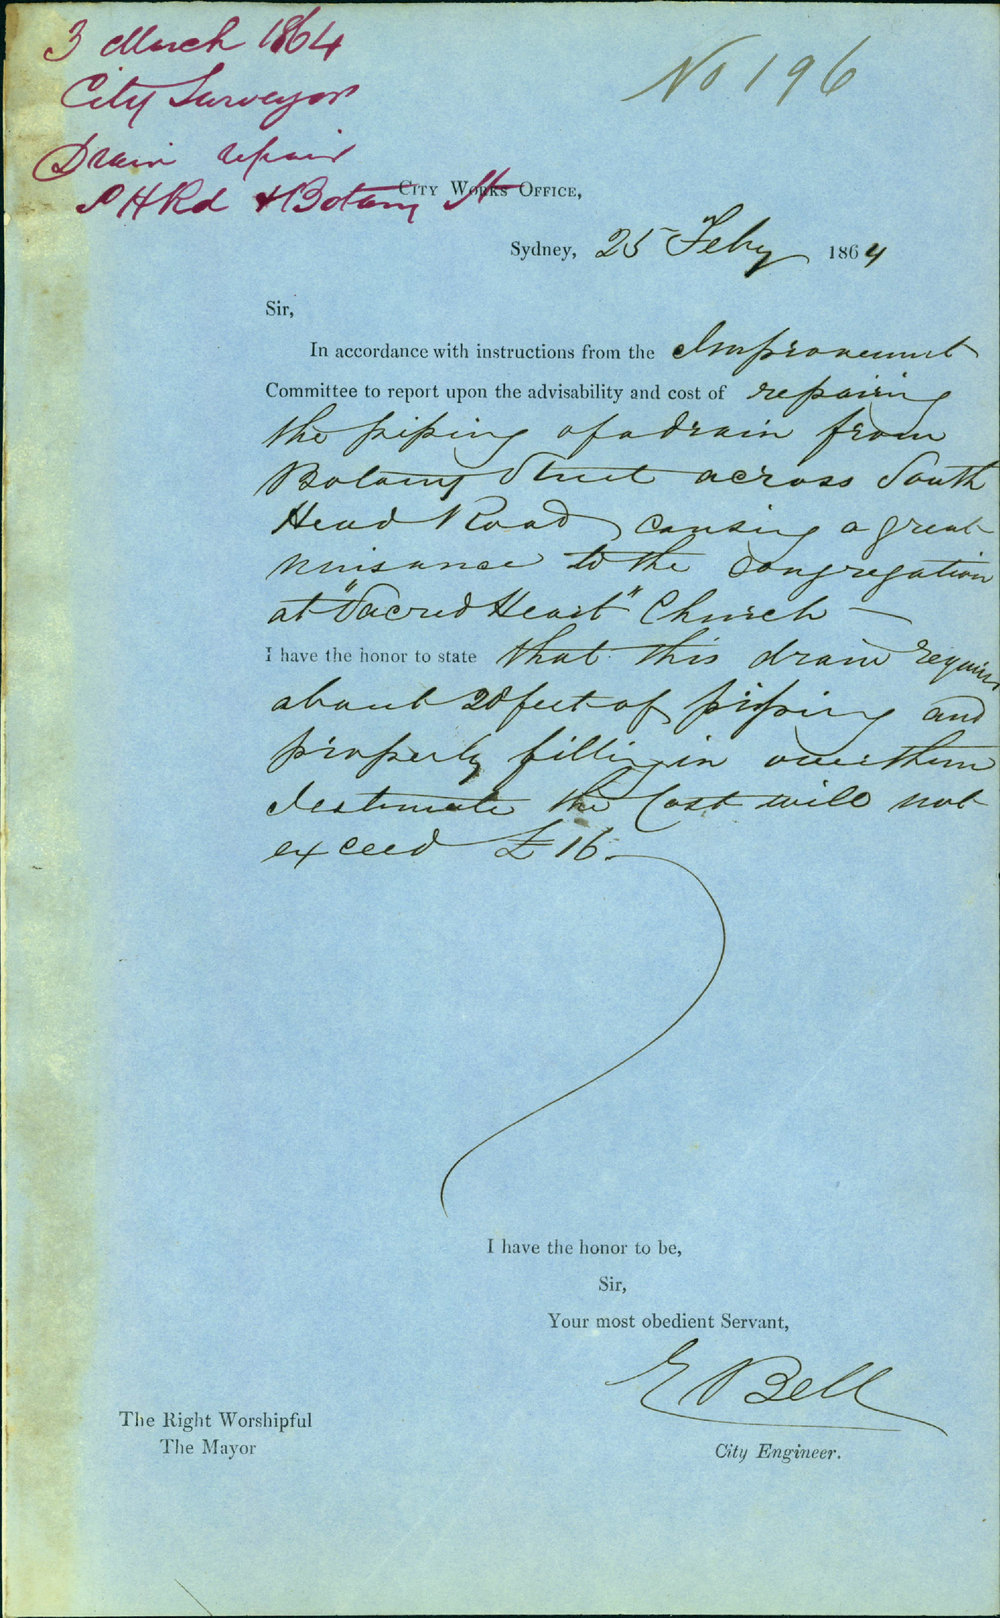 3 March 1864
City Surveyor
Drain repair
S H Rd & Botany St
No 196
City Works Office,
Sydney, 25 Feby 1864
Sir,
In accordance with instructions from the Improvement
Committee to report upon the advisability and cost of repairing
the piping of a drain from
Botany Street across South
Head Road causing a great
nuisance to the congregation
at "Sacred Heart" Church —
I have the honor to state that this drain requires
about 20 feet of piping and
properly filling in over them
I estimate the Cost will not
exceed £16.
I have the honor to be,
Sir,
Your most obedient Servant,
E Bell
City Engineer.
The Right Worshipful
The Mayor